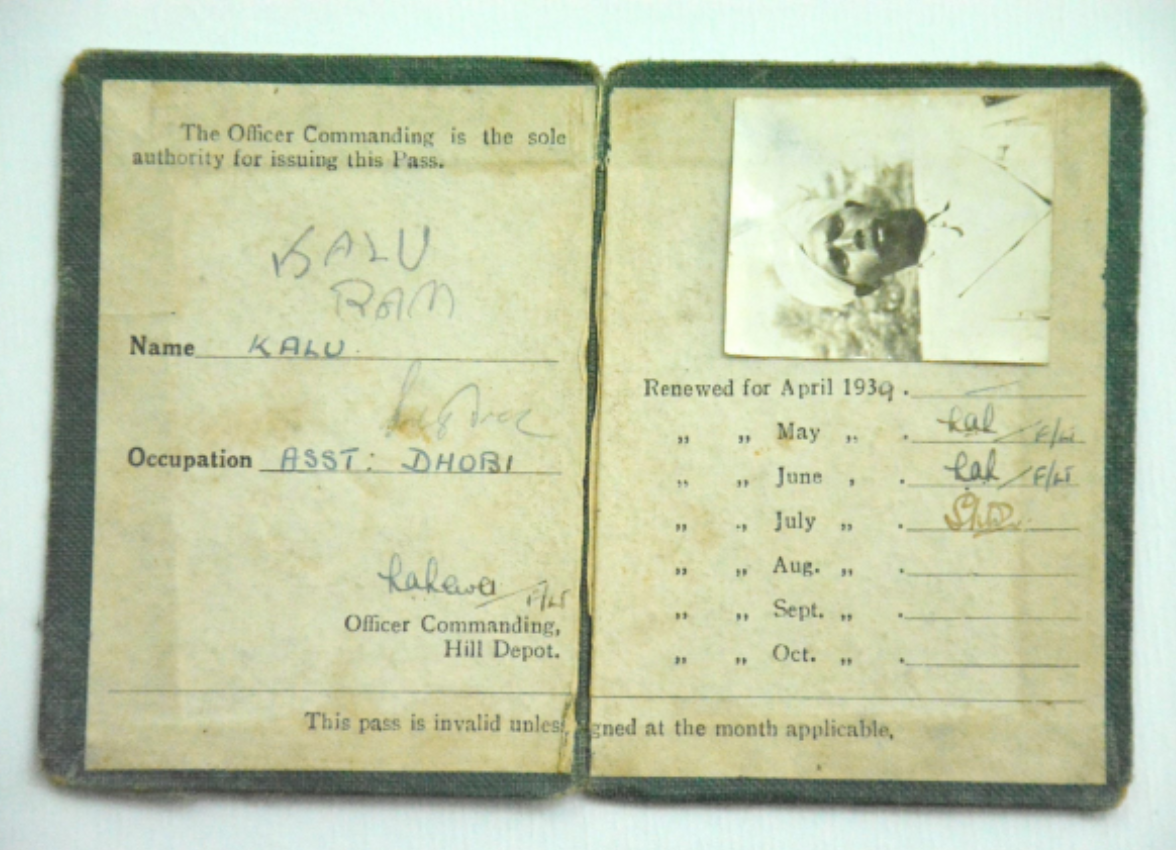 The Officer Commanding is the sole
authority for issuing this Pass.
KALU
RAM
Name KALU
Occupation ASST: DHOBI
F/LT
Officer Commanding,
Hill Depot.
Renewed for April 1939.
„ „ May „ . F/LT
„ „ June , . F/LT
„ „ July „ .
„ „ Aug. „ .
„ „ Sept. „ .
„ „ Oct. „ .
This pass is invalid unles gned at the month applicable,